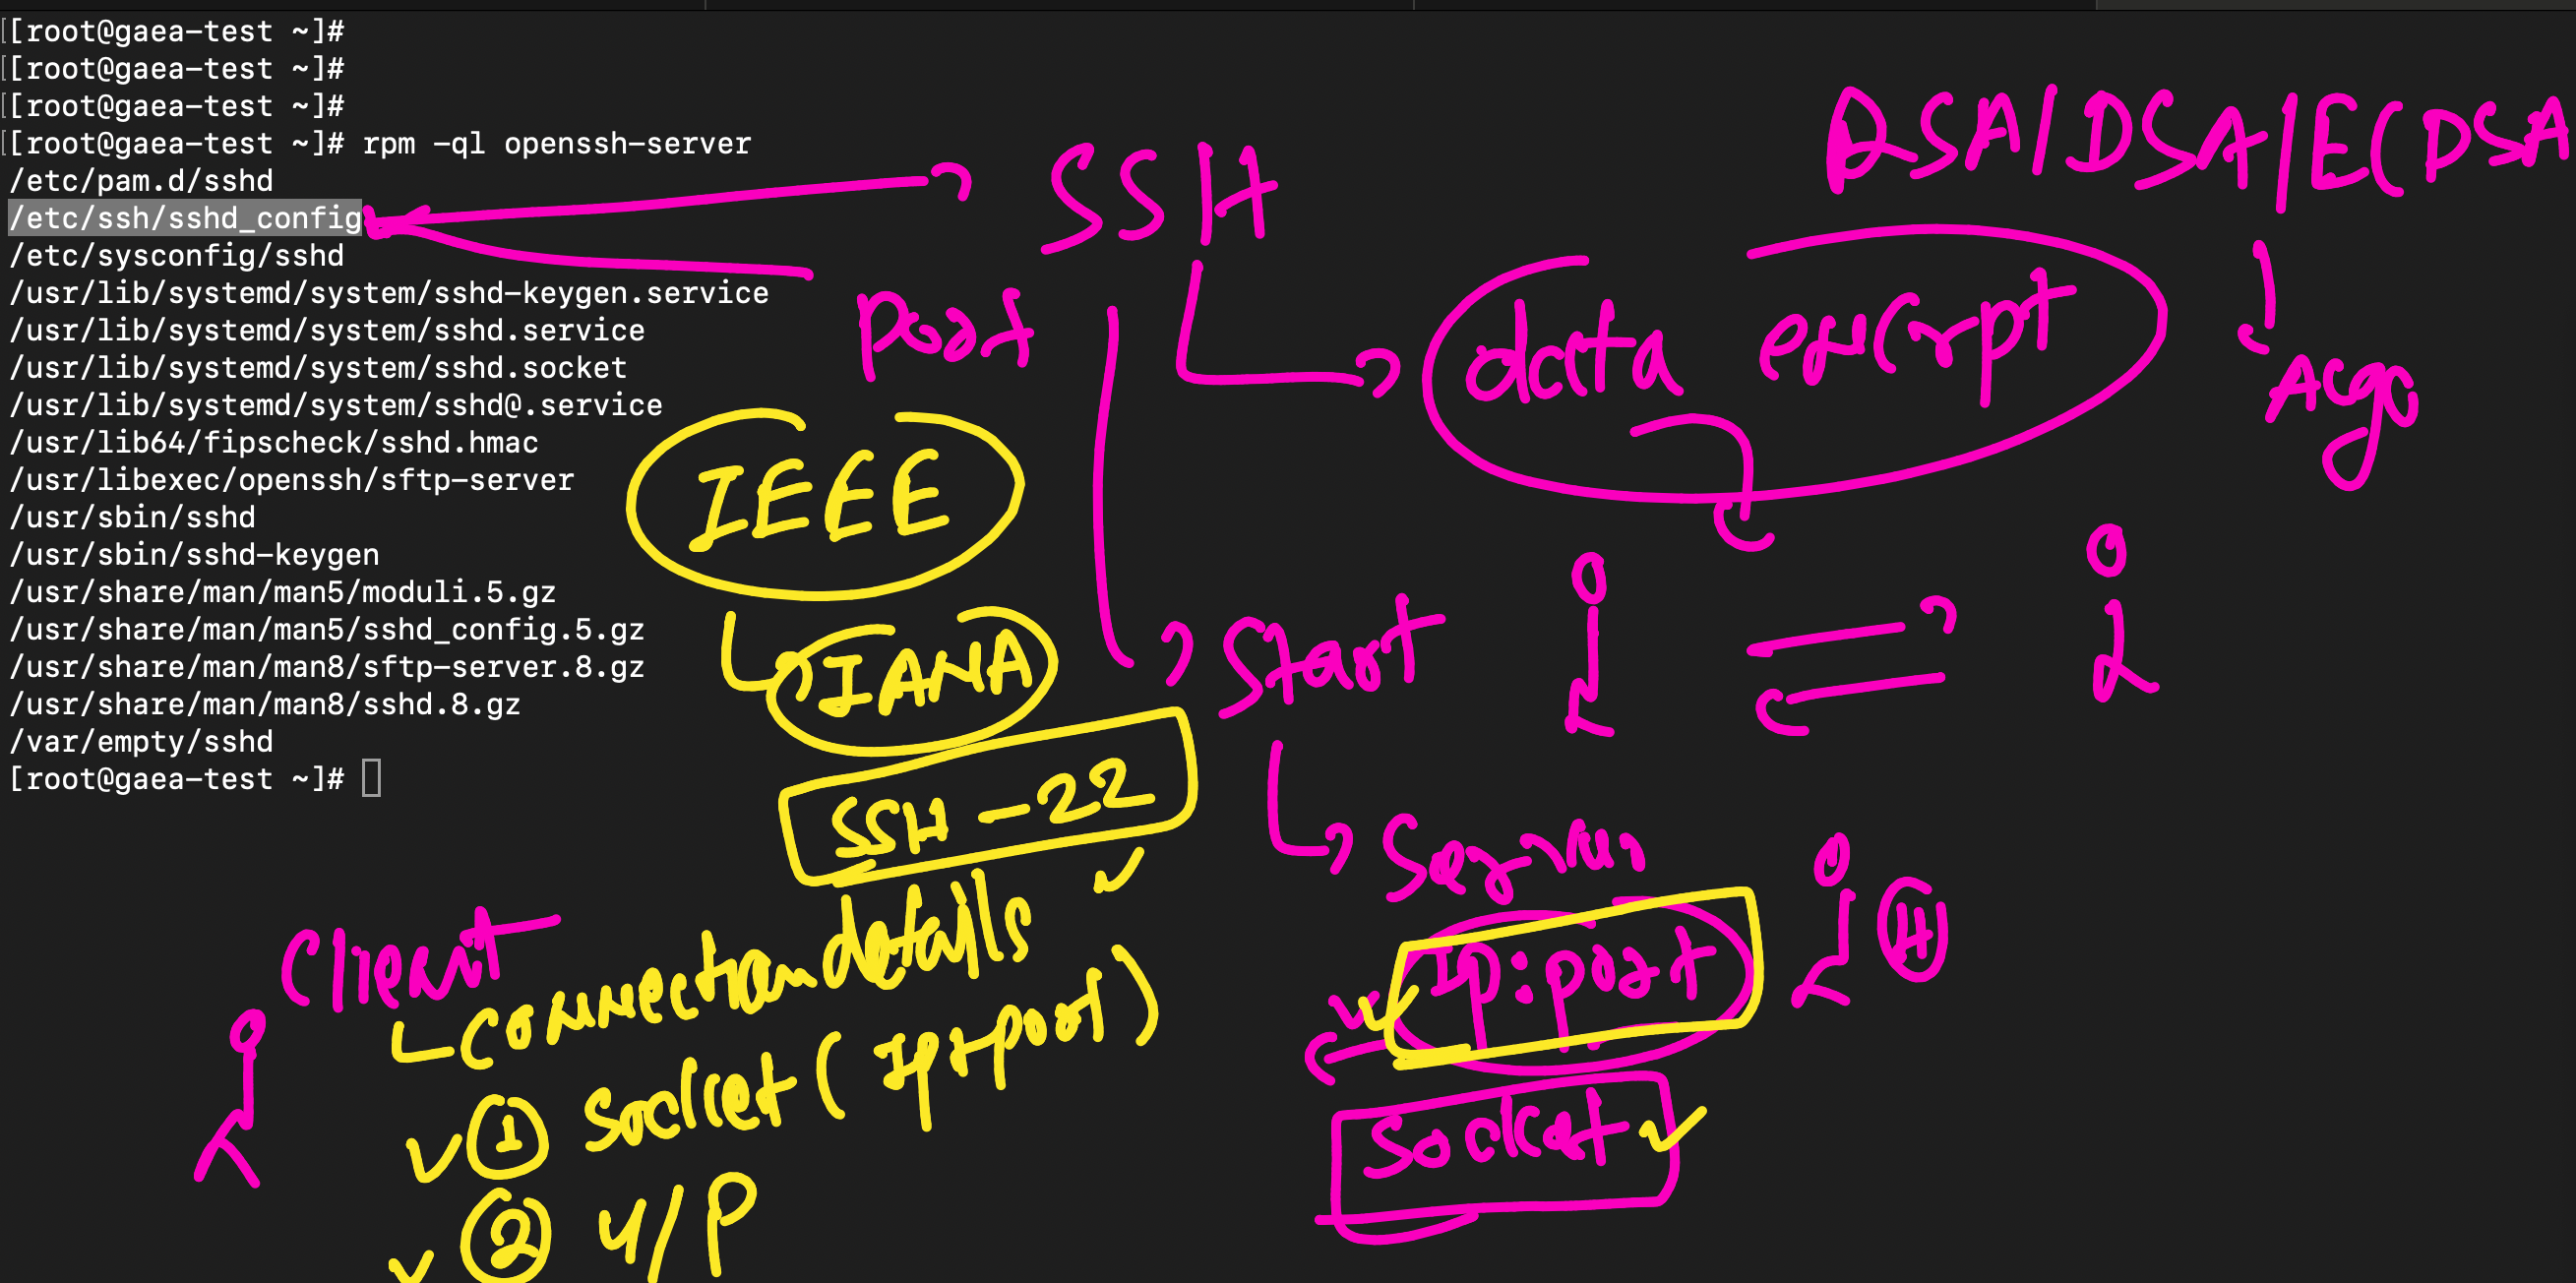 [[root@gaea-test ~]#
[[root@gaea-test ~]#
[[root@gaea-test ~]#
[[root@gaea-test ~]# rpm -ql openssh-server
/etc/pam.d/sshd
/etc/ssh/sshd_config
/etc/sysconfig/sshd
/usr/lib/systemd/system/sshd-keygen.service
/usr/lib/systemd/system/sshd.service
/usr/lib/systemd/system/sshd.socket
/usr/lib/systemd/system/sshd@.service
/usr/lib64/fipscheck/sshd.hmac
/usr/libexec/openssh/sftp-server
/usr/sbin/sshd
/usr/sbin/sshd-keygen
/usr/share/man/man5/moduli.5.gz
/usr/share/man/man5/sshd_config.5.gz
/usr/share/man/man8/sftp-server.8.gz
/usr/share/man/man8/sshd.8.gz
/var/empty/sshd
[root@gaea-test ~]#
SSH
RSA/DSA/ECDSA
Port
data encrpt
Algo
IEEE
IANA
Start
SSH - 22
Client
Connection details
Ip:port
① Socket (Ip+port)
Socket
② U/P